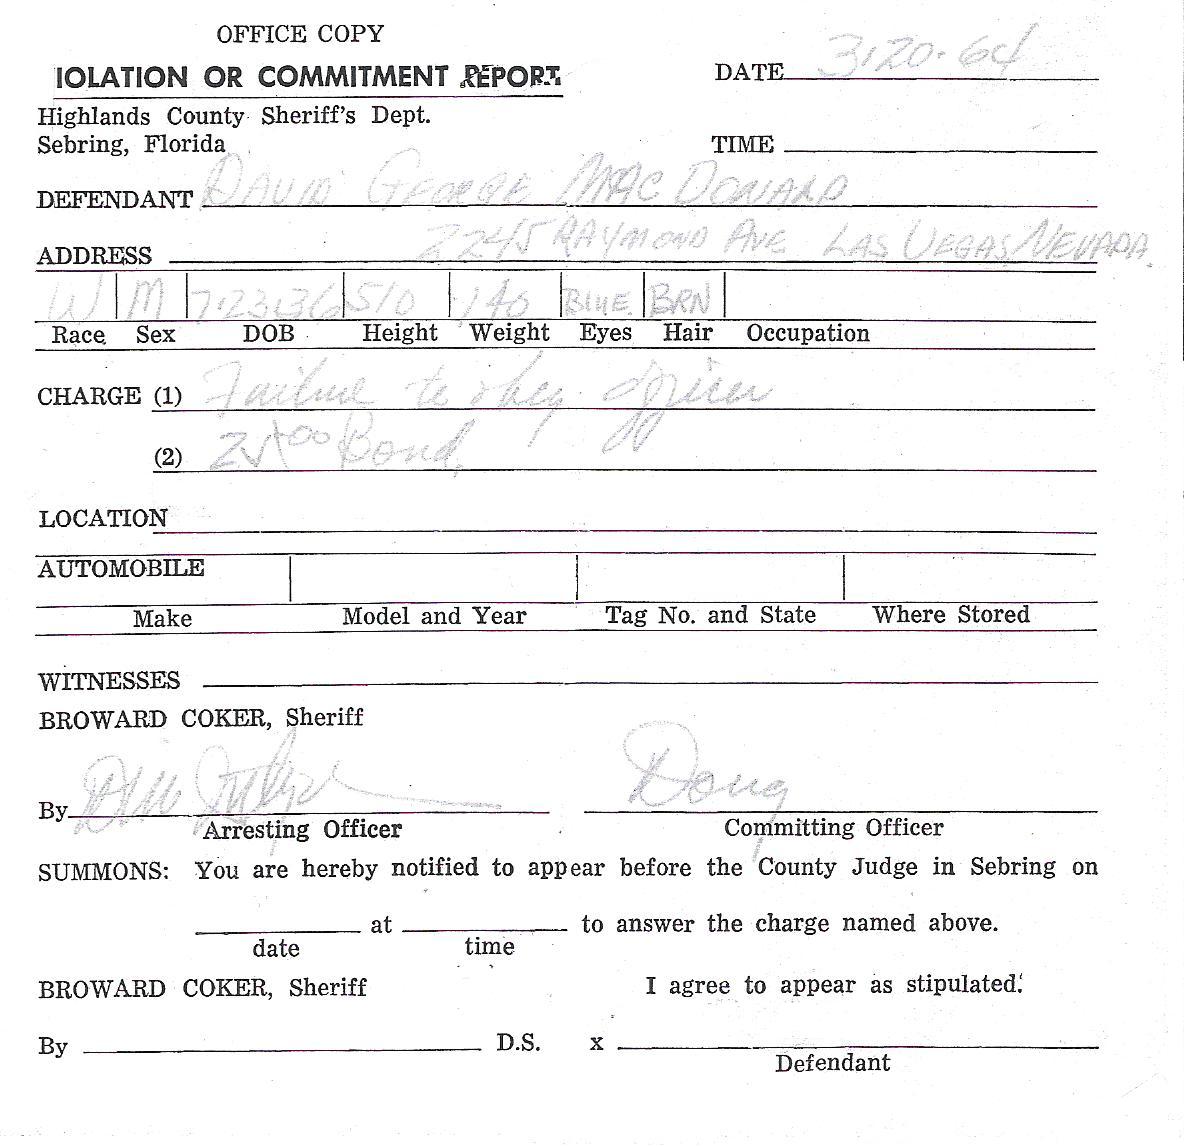 OFFICE COPY
IOLATION OR COMMITMENT REPORT
DATE 3-20-64
Highlands County Sheriff's Dept.
Sebring, Florida
TIME
DEFENDANT DAVID GEORGE MAC DONARD
ADDRESS 2245 RAYMOND AVE LAS VEGAS/NEVADA.
W M 7-23-36 5/0 140 BLUE BRN
Race Sex DOB Height Weight Eyes Hair Occupation
CHARGE (1) Failure to obey officer
(2) 25.00 Bond
LOCATION
AUTOMOBILE
Make Model and Year Tag No. and State Where Stored
WITNESSES
BROWARD COKER, Sheriff
By Doug
Arresting Officer Committing Officer
SUMMONS: You are hereby notified to appear before the County Judge in Sebring on
at to answer the charge named above.
date time
BROWARD COKER, Sheriff I agree to appear as stipulated.
By D.S. x
Defendant